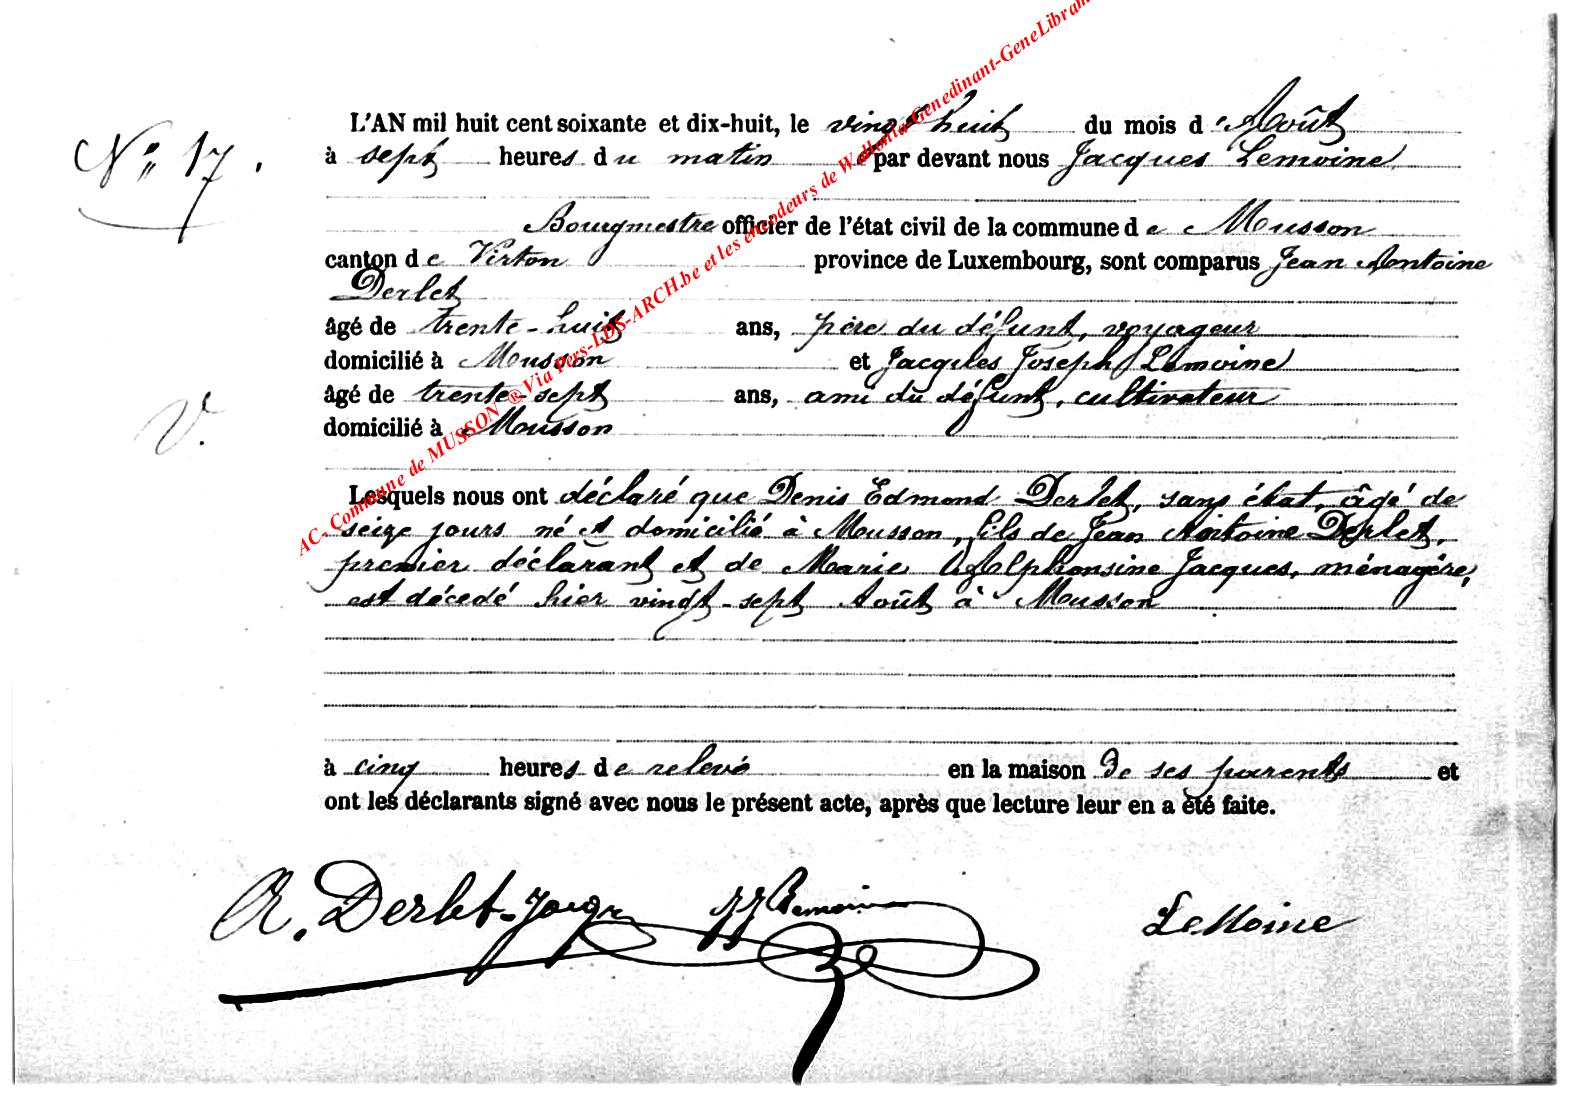 N° 17.
L'AN mil huit cent soixante et dix-huit, le vingt huit du mois d'Août
à sept heures du matin par devant nous Jacques Lemoine
Bourgmestre officier de l'état civil de la commune de Musson
canton de Virton province de Luxembourg, sont comparus Jean Antoine
Derlet
âgé de trente-huit ans, père du défunt, voyageur
domicilié à Musson et Jacques Joseph Lemoine
âgé de trente-sept ans, ami du défunt, cultivateur
V.
domicilié à Musson
Lesquels nous ont déclaré que Denis Edmond Derlet, sans état, âgé de
seize jours né et domicilié à Musson, fils de Jean Antoine Derlet,
premier déclarant et de Marie Alphonsine Jacques, ménagère,
est décédé hier vingt-sept Août à Musson
à cinq heures de relevé en la maison de ses parents et
ont les déclarants signé avec nous le présent acte, après que lecture leur en a été faite.
A. Derlet-Jacq JJ Lemoine LeMoine
AC. Commune de MUSSON ® Via Pers-LDS-ARCH.be et les encodeurs de Wallonia-Genedinant-GeneLibram